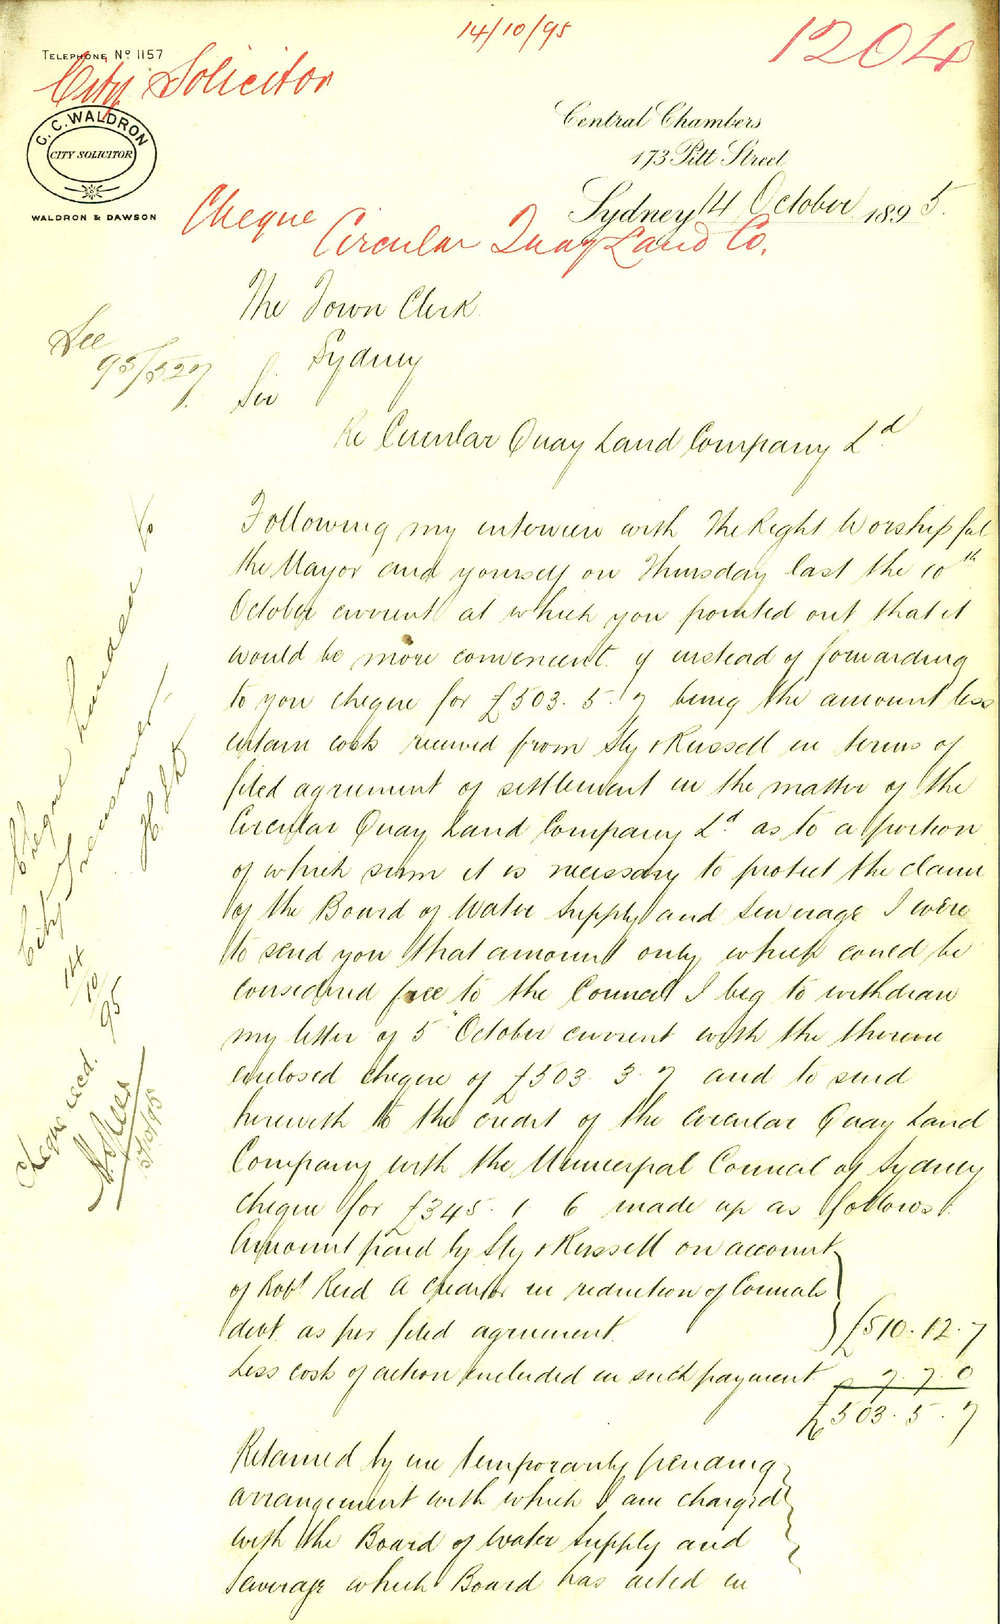 14/10/95
1204
TELEPHONE No 1157
City Solicitor
C. C. WALDRON
CITY SOLICITOR
WALDRON & DAWSON
Central Chambers
173 Pitt Street
Sydney 14 October 1895.
Cheque
Circular Quay Land Co.
The Town Clerk
Sydney
See
95/3527
Sir
Re Circular Quay Land Company Ld
Following my interview with The Right Worshipful
the Mayor and yourself on Thursday last the 10th
October current at which you pointed out that it
would be more convenient if instead of forwarding
to you cheque for £503. 5. 7 being the amount less
certain costs received from Sly & Russell in terms of
filed agreement of settlement in the matter of the
Circular Quay Land Company Ld as to a portion
of which sum it is necessary to protect the claim
of the Board of Water Supply and Sewerage I were
to send you that amount only which could be
considered free to the Council I beg to withdraw
my letter of 5" October current with the therein
enclosed cheque of £503. 3. 7 and to send
herewith to the credit of the Circular Quay Land
Company with the Municipal Council of Sydney
cheque for £345. 1. 6 made up as follows.
Amount paid by Sly & Russell on account
of Robt Reid a creditor in reduction of Councils
debt as per filed agreement. £510. 12. 7
Less costs of action included in such payment 7. 7. 0
£503. 5. 7
Retained by me temporarily pending
arrangement with which I am charged
with the Board of Water Supply and
Sewerage which Board has acted in
Cheque handed to
City Treasurer
14/10/95
Cheque recd.